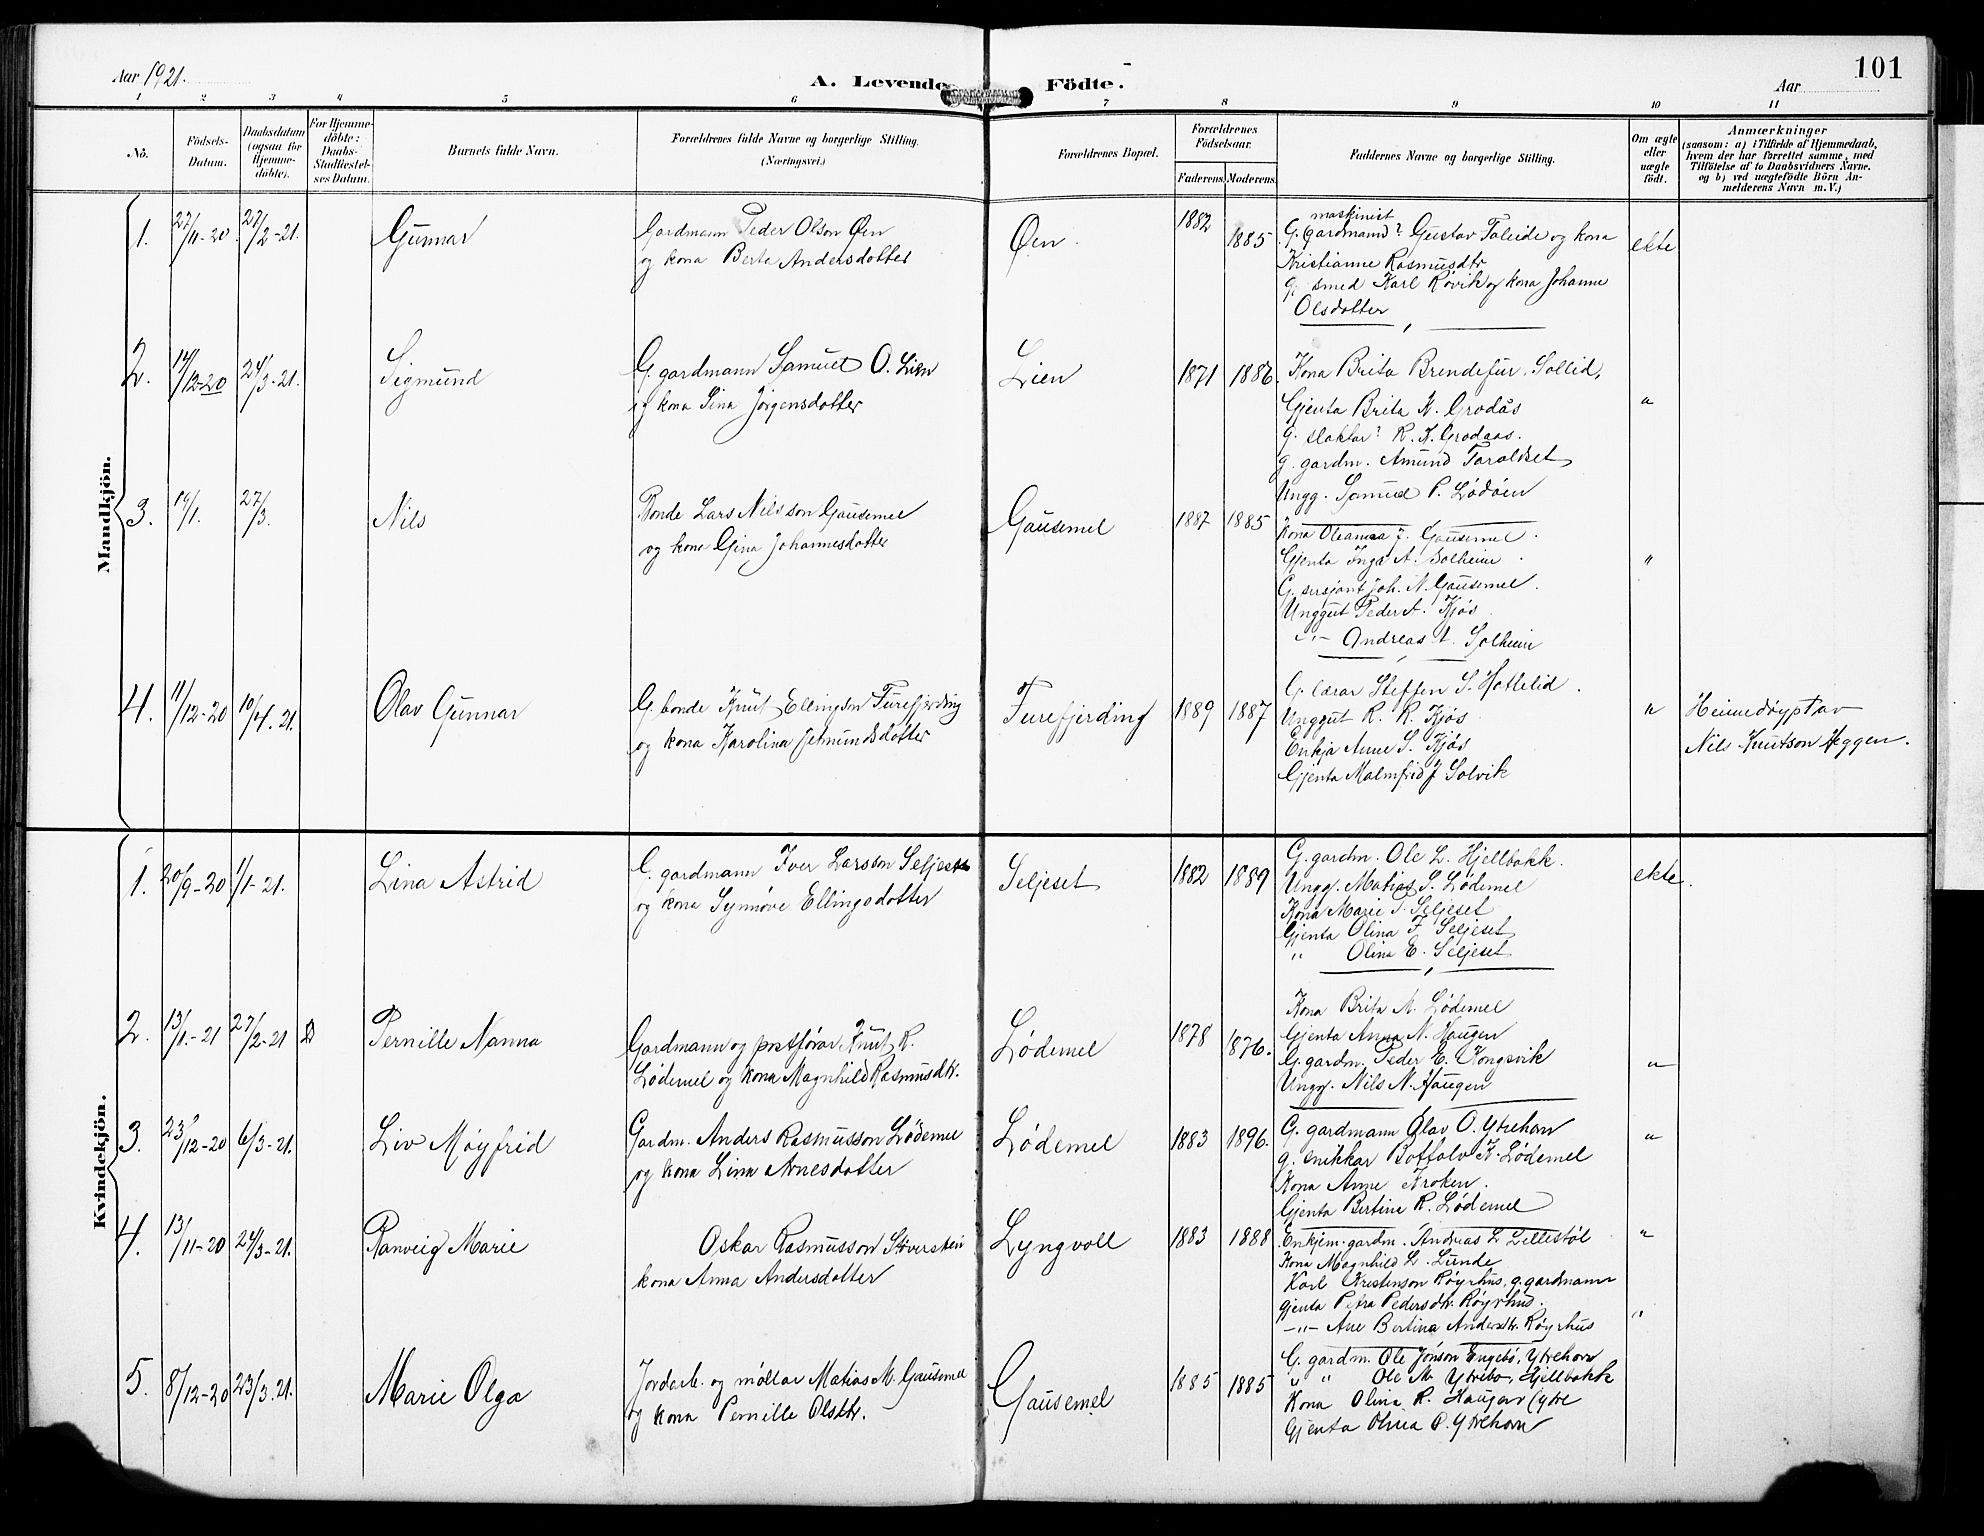 Aar 1921.
A. Levende Födte.
Aar
101
1 2 3 4 5 6 7 8 9 10 11
No.
Födsels-
Datum.
Daabsdatum
(ogsaa for
Hjemme-
döbte).
For Hjemme-
döbte:
Daabs-
Stadfæstel-
ses Datum.
Barnets fulde Navn.
Forældrenes fulde Navne og borgerlige Stilling.
(Næringsvei.)
Forældrenes Bopæl.
Forældrenes
Födselsaar.
Faderens. Moderens.
Faddernes Navne og borgerlige Stilling.
Om ægte
eller
uægte
födt.
Anmærkninger
(saasom: a) i Tilfælde af Hjemmedaab,
hvem der har forrettet samme, med
Tilföielse af to Daabsvidners Navne.
og b) ved uægtefödte Börn An-
melderens Navn m. V.)
Mandkjön.
1. 27/11-20. 27/2-21. Gunnar
Gardmann Peder Olson Øen
og kona Berta Andersdotter
Øen
1882 1885
maskinist
G. Gardmand? Gustav Faleide og kona
Kristianne Rasmusdtr
g. smed Karl Røvik og kona Johanne
Olsdotter
ekte
2. 14/12-20 24/3-21. Sigmund
G. gardmann Samuel O. Lien
og kona Sina Jørgensdotter
Lien
1871 1886.
Kona Brita Brendefur, Sollid,
Gjenta Brita K. Grodås
g. slaktar? R. K. Grodaas.
g. gardm. Amund Taraldset
Ungg. Samuel P. Lødøen
"
3. 19/1. 27/3. Nils
Bonde Lars Nilsson Gausemel
og kona Gina Johannesdotter
Gausemel
1887 1885
Kona Oleanna J. Gausemel.
Gjenta Inga A. Solheim.
G. sersjant Joh. N. Gausemel.
Unggut Peder A. Kjøs
-"- Andreas A. Solheim
"
4. 11/12-20 10/4-21. Olav Gunnar
G. bonde Knut Ellingson Furefjerding
og kona Karolina Jetmundsdotter
Furefjerding
1889 1887
G. lærar Steffen S. Hatlelid.
Unggut R. R. Kjøs
Enkja Anne S. Kjøs
Gjenta Malmfrid J Solvik
"
Heimedøypt av
Nils Knutson Heggen.
Kvindekjön.
1. 20/9-20 1/1-21. Lina Astrid
G. gardmann Iver Larsson Seljeset
og kona Synnøve Ellingsdotter
Seljeset
1882 1889
G. gardm. Ole L. Hjellbakk.
Ungg. Matias S. Lødemel
Kona Marie S. Seljeset
Gjenta Olina F. Seljeset
" Olina E. Seljeset
ekte.
2. 13/1-21 27/2-21 Pernille Nanna
Gardmann og postførar Knut R.
Lødemel og kona Magnhild Rasmusdtr.
Lødemel
1878 1876.
Kona Brita M. Lødemel
Gjenta Anna N. Haugen
G. gardm. Peder E. Kongsvik
Ungg. Nils N. Haugen
"
3. 23/12-20 6/3-21. Liv Møyfrid
Gardm. Anders Rasmusson Lødemel
og kona Lina Arnesdotter
Lødemel
1883 1896.
G. gardmann Olav O. Ytrehorn
g. snikkar Bottolv K. Lødemel
Kona Anne Kroken.
Gjenta Bertine R. Lødemel
"
4. 13/11-20 24/3-21. Ranveig Marie
Oskar Rasmusson Støverstein
kona Anna Andersdotter
Lyngvoll
1883 1888
Enkjem. gardm. Andreas L Lillestøl
Kona Magnhild L. Lunde
Karl Kristenson Røyrhus, g. gardmann
gjenta Petra Pedersdtr. Røyrhus.
-"- Ane Bertina Andersdtr. Røyrhus
"
5. 8/12-20 23/3.21. Marie Olga
Jordarb. og møllar Matias M. Gausemel
og kona Pernille Olsdtr.
Gausemel
1885 1885
"
G. gardm. Ole Jonson Engebø, Ytrehorn
" " Ole M. Ytrebø, Hjellbakk
Kona Olina R. Haugen (ytre
Gjenta Olina O. Ytrehorn